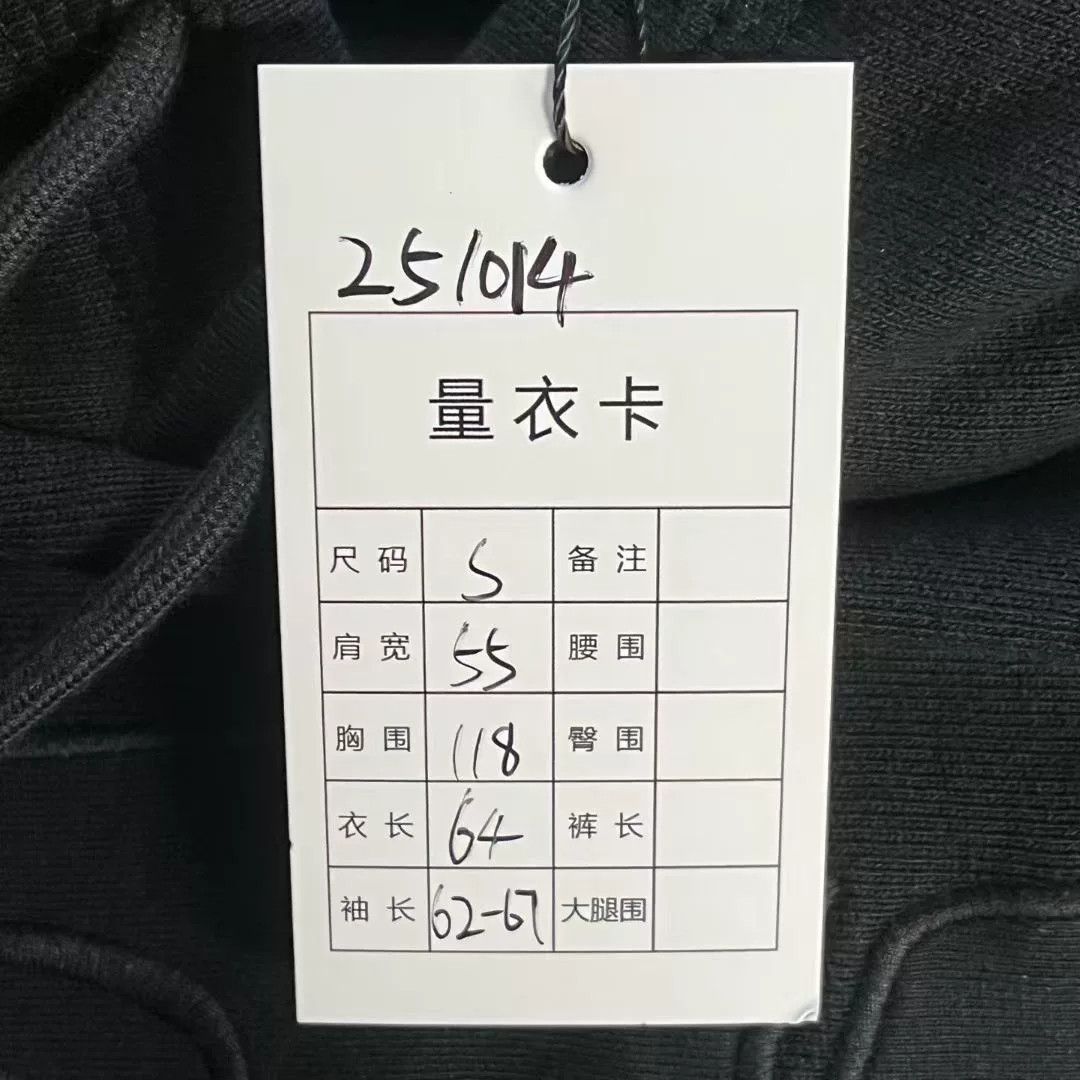 251014
量衣卡
尺码 S 备注
肩宽 55 腰围
胸围 118 臀围
衣长 64 裤长
袖长 62-67 大腿围